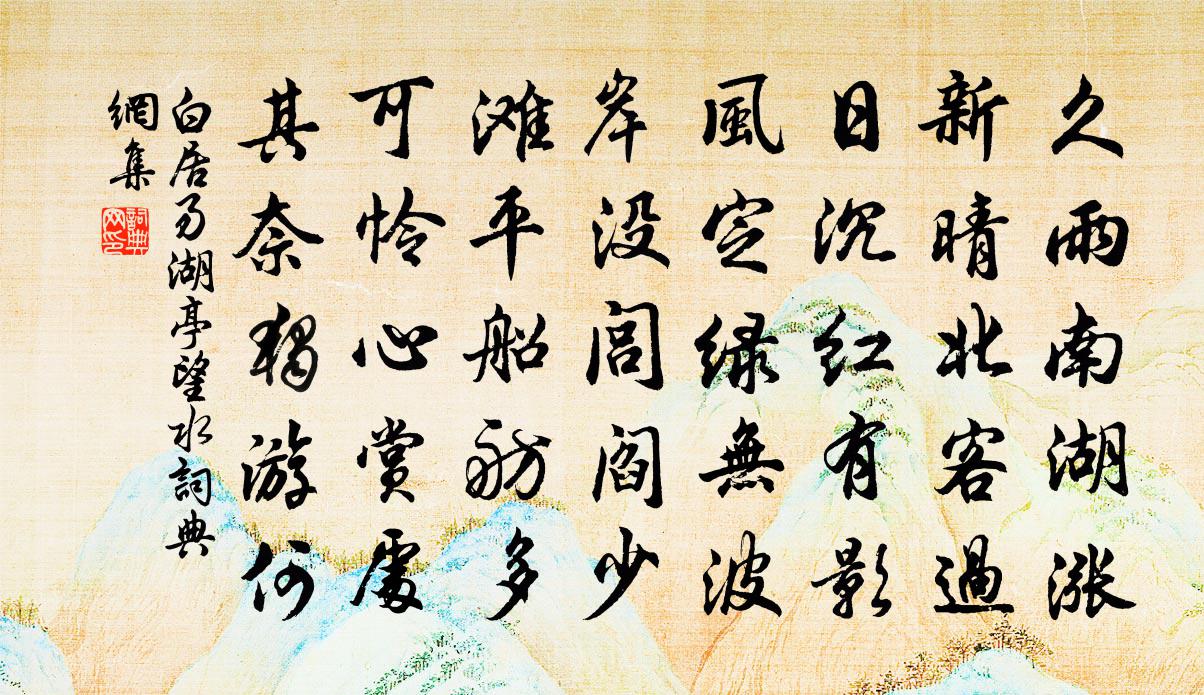 久雨南湖涨
新晴北客過
日沉红有影
風定绿無波
岸没闾阎少
滩平船舫多
可怜心賞處
其奈獨游何
白居易湖亭望水詞典
網集
詞典
网印